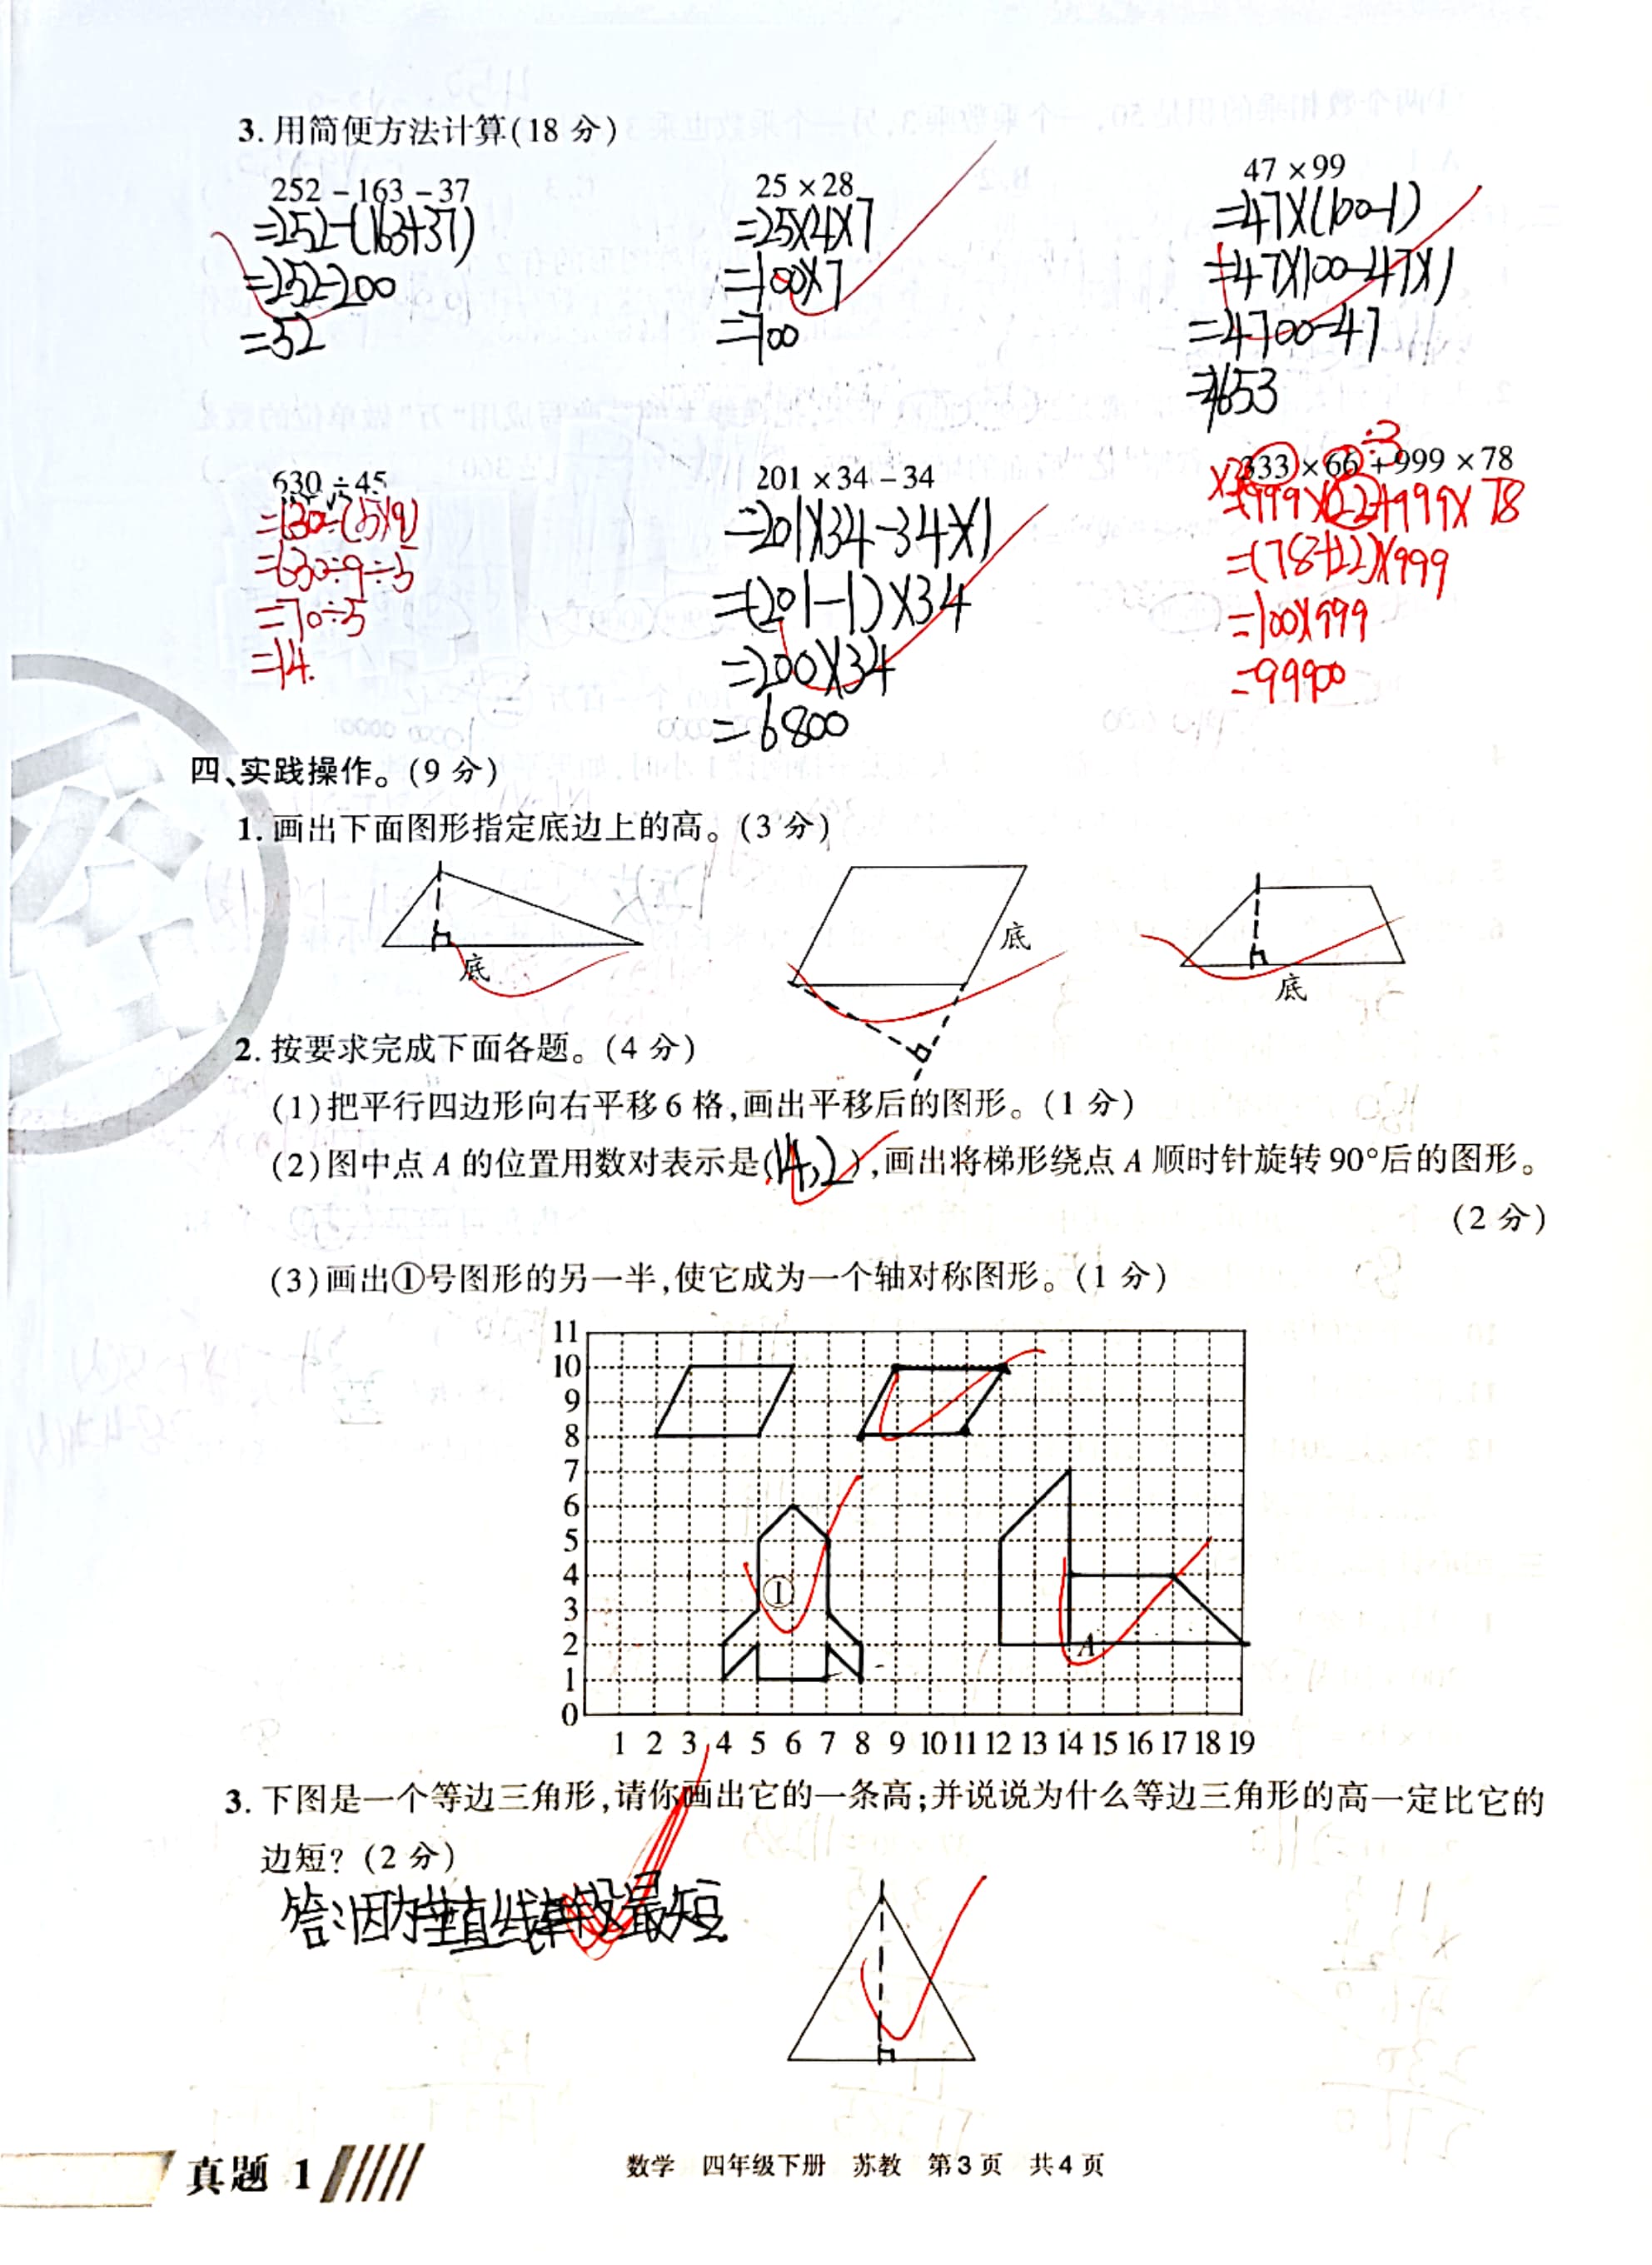 3. 用简便方法计算(18 分)
252 - 163 - 37
=252-(163+37)
=252-200
=52
25 × 28
=25×4×7
=100×7
=700
47 × 99
=47×(100-1)
=47×100-47×1
=4700-47
=4653
630 ÷ 45
=630÷(5×9)
=630÷9÷5
=70÷5
=14.
201 × 34 - 34
=201×34-34×1
=(201-1)×34
=200×34
=6800
×3 ÷3
333 × 66 + 999 × 78
=999×22+999×78
=(78+22)×999
=100×999
=99900
四、实践操作。(9 分)
1. 画出下面图形指定底边上的高。(3 分)
底
底
底
2. 按要求完成下面各题。(4 分)
(1)把平行四边形向右平移 6 格,画出平移后的图形。(1 分)
(2)图中点 A 的位置用数对表示是(14,2),画出将梯形绕点 A 顺时针旋转 90°后的图形。
(2 分)
(3)画出①号图形的另一半,使它成为一个轴对称图形。(1 分)
11
10
9
8
7
6
5
4
3
2
1
0
①
A
1 2 3 4 5 6 7 8 9 10 11 12 13 14 15 16 17 18 19
3. 下图是一个等边三角形,请你画出它的一条高;并说说为什么等边三角形的高一定比它的
边短? (2 分)
答:因为垂直线段最短
真题 1
数学 四年级下册 苏教 第3页 共4页